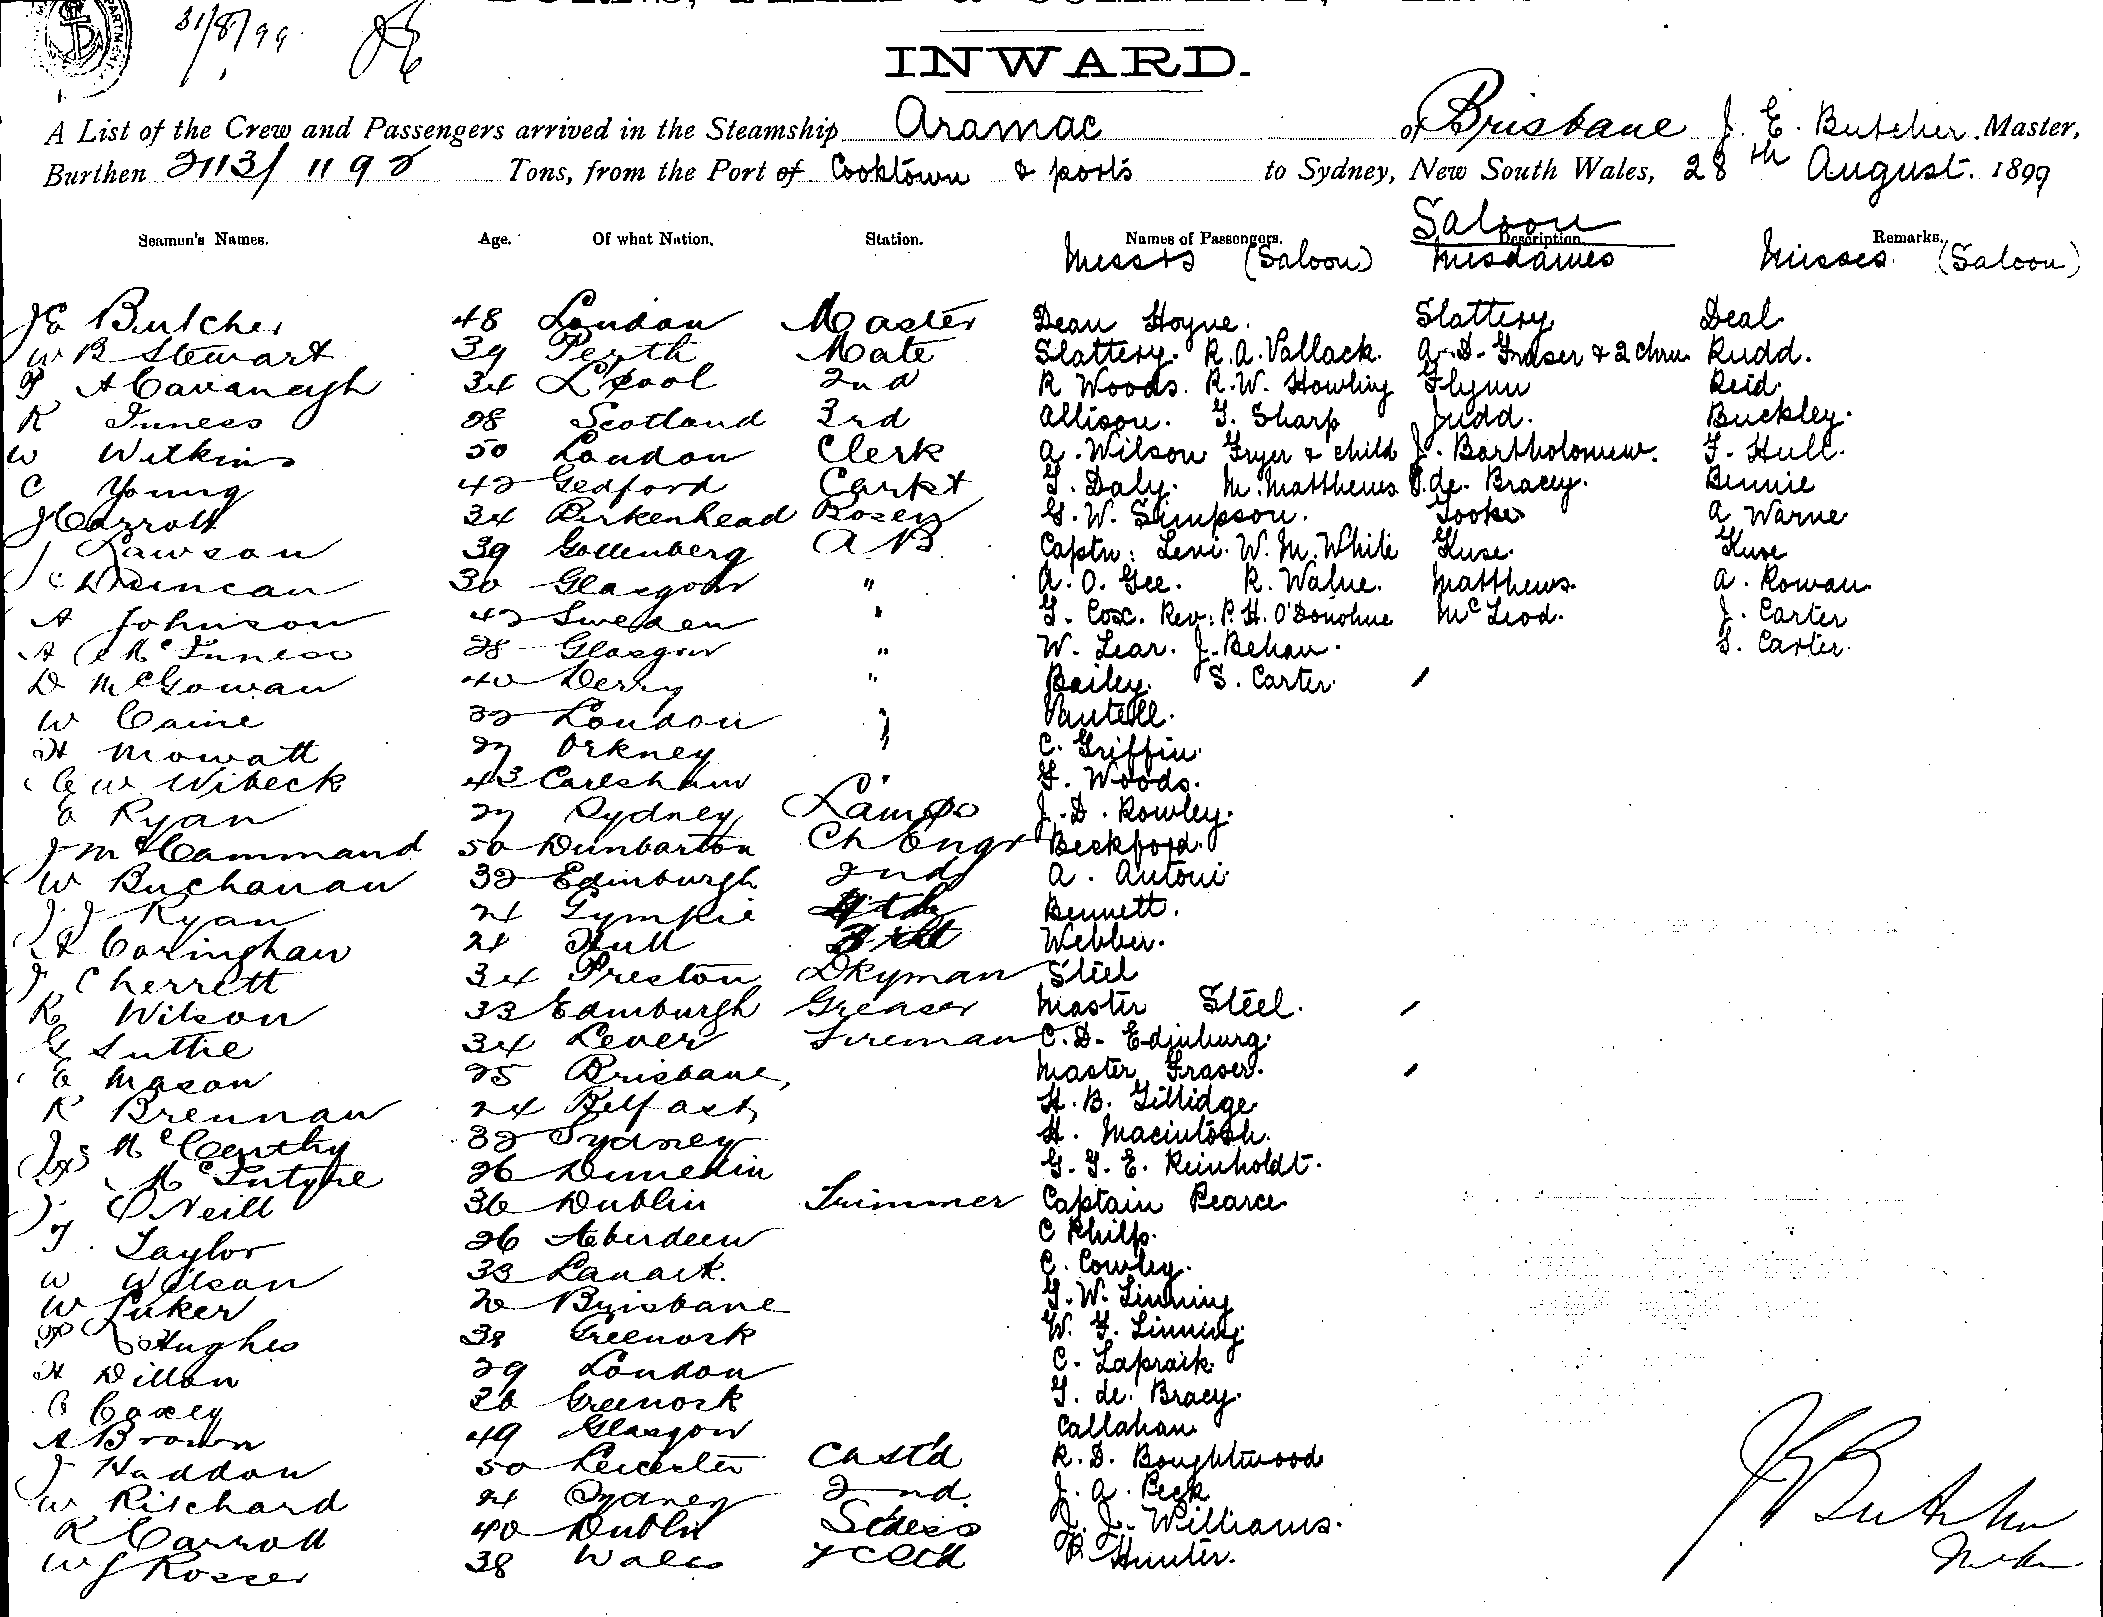 31/8/99
INWARD.
A List of the Crew and Passengers arrived in the Steamship Aramac of Brisbane J. E. Butcher Master,
Burthen 2113/1192 Tons, from the Port of Cooktown & ports to Sydney, New South Wales, 28th August. 1899
Saloon
Seamen's Names. Age. Of what Nation. Station. Names of Passengers. Description Remarks.
Messrs (Saloon) Mesdames Misses (Saloon)
J E Butcher 48 London Master Dean Hoyne. Slattery Deal
W B Stewart 39 Perth Mate Slattery. R. A. Vallack. A. D. Fraser & 2 chn. Rudd.
P A Cavanagh 34 L'pool 2nd R Woods. R. W. Howling Flynn Reid
R Inness 28 Scotland 3rd Allison. G. Sharp Judd. Buckley.
W Watkins 50 London Clerk A. Wilson Fryer & child J. Bartholomew. F. Hull.
C Young 42 Gedford Carpt T. Daly. M. Matthews P. de. Bracey. Binnie
J Carroll 34 Birkenhead Bosen G. W. Simpson. Tooker A Warne
J Lawson 39 Gottenberg A B Captn: Levi. W. M. White Huse. Huse
J C Duncan 30 Glasgow " A. O. Gee. R. Walne. Matthews. A. Rowan
A Johnson 42 Sweden " G. Cox. Rev: P. H. O'Donohue McLeod. J. Carter
A McInnes 28 Glasgow " W. Lear. J. Behan. S. Carter.
D McGowan 40 Derry " Bailey. S. Carter.
W Caine 32 London " Vautell.
H Mowatt 27 Orkney " C. Griffin
C W Wibeck 43 Carlsham " G. Woods.
E Ryan 27 Sydney Lamps J. D. Rowley.
J McCammand 50 Dunbarton Ch Engr Beckford.
W Buchanan 32 Edinburgh 2nd A. Antoni
J J Ryan 24 Gympie 4th Bennett.
A Coringham 24 Hull Webber.
J Cherrett 34 Preston Dkyman Steel
R Wilson 33 Edinburgh Greaser Master Steel.
G Suttie 34 Lever Fireman C. D. Edinburg.
E Mason 25 Brisbane, Master Fraser.
R Brennan 24 Belfast H. B. Gillidge
Jas McCenthy 32 Sydney H. Macintosh.
McIntyre 26 Dunedin G. G. E. Reinholdt.
J O'Neill 36 Dublin Trimmer Captain Pearce
T. Taylor 26 Aberdeen C Philp.
W Wilson 33 Lanark. C. Cowley.
W Luker 20 Brisbane G. W. Linning
P Hughes 38 Greenock W. G. Linning
H Dillon 29 London C. Lapraik.
C Caxey 26 Greenock G. de. Bracy.
A Brown 49 Glasgow Callahan
J Haddon 50 Leicester Ch Std R. D. Boughtwood
W Ritchard 24 Sydney 2nd. J. A. Peck
R Carroll 40 Dublin J. J. Williams.
W J Rosser 38 Wales R Hunter.
J E Butcher
Master